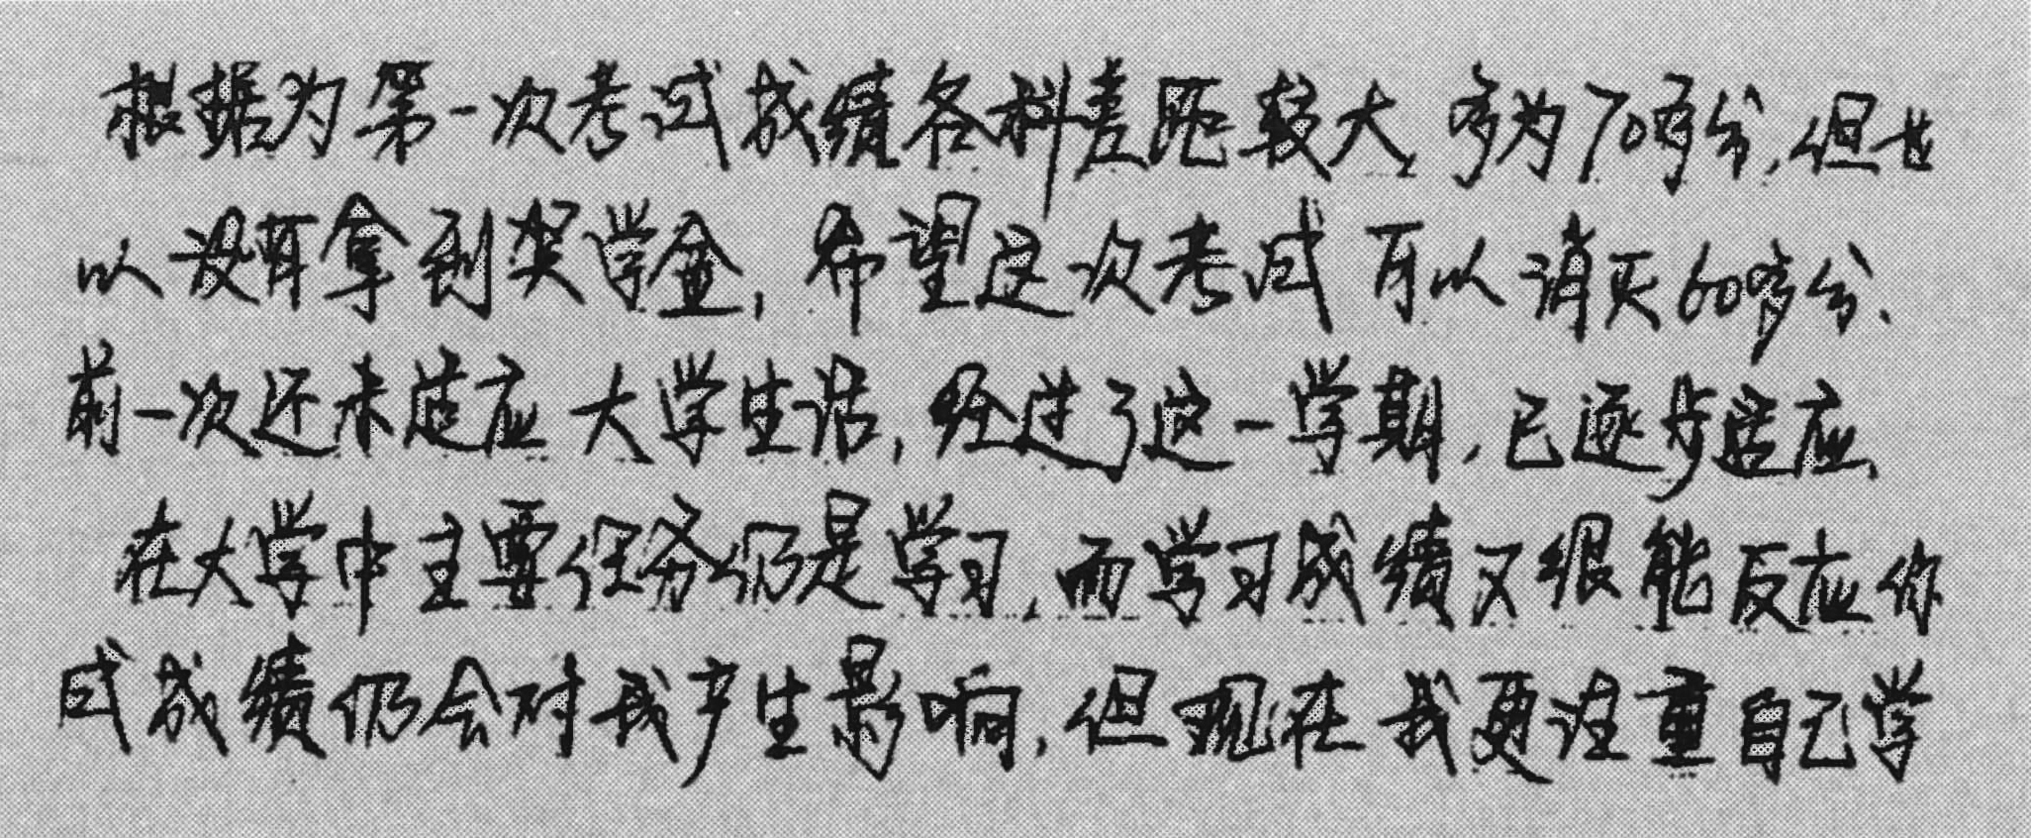 根据为第一次考试成绩各科差距较大,多为70多分,但也
以没有拿到奖学金,希望这次考试可以消灭60多分.
前一次还未适应大学生活,经过了这一学期,已逐步适应,
在大学中主要任务仍是学习,而学习成绩又很能反应你
试成绩仍会对我产生影响,但现在我更注重自己学